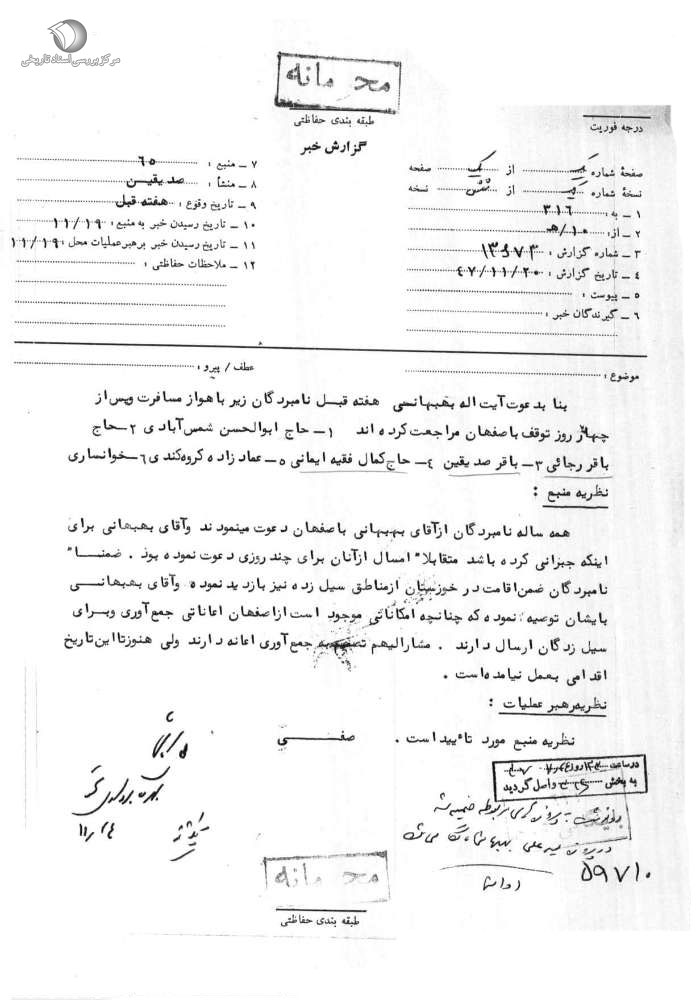 مرکز بررسی اسناد تاریخی
محرمانه
طبقه بندی حفاظتی
گزارش خبر
درجه فوریت
صفحهٔ شماره یک از یک صفحه
نسخهٔ شماره یک از شش نسخه
۱ ـ به : ۳۱۶
۲ ـ از : ۱۰/هـ
۳ ـ شماره گزارش : ۱۳۶۷۳
۴ ـ تاریخ گزارش : ۴۷/۱۱/۲۰
۵ ـ پیوست :
۶ ـ گیرندگان خبر :
۷ ـ منبع : ۶۵
۸ ـ منشأ : صدیقین
۹ ـ تاریخ وقوع : هفته قبل
۱۰ ـ تاریخ رسیدن خبر به منبع : ۱۱/۱۹
۱۱ ـ تاریخ رسیدن خبر برهبر عملیات محل : ۱۱/۱۹
۱۲ ـ ملاحظات حفاظتی :
موضوع :
عطف / پیرو :
بنا بدعوت آیت اله بهبهانی هفته قبل نامبردگان زیر باهواز مسافرت وپس از
چهار روز توقف باصفهان مراجعت کرده اند ۱ـ حاج ابوالحسن شمس آبادی ۲ـ حاج
باقر رجائی ۳ـ باقر صدیقین ۴ـ حاج کمال فقیه ایمانی ۵ـ عماد زاده کروه کندی ۶ـ خوانساری
نظریه منبع :
همه ساله نامبردگان ازآقای بهبهانی باصفهان دعوت مینمودند وآقای بهبهانی برای
اینکه جبرانی کرده باشد متقابلا" امسال ازآنان برای چند روزی دعوت نموده بود . ضمنا"
نامبردگان ضمن اقامت در خوزستان ازمناطق سیل زده نیز بازدید نموده وآقای بهبهانی
بایشان توصیه نموده که چنانچه امکاناتی موجود است ازاصفهان اعاناتی جمع آوری وبرای
سیل زدگان ارسال دارند . مشارالیهم تصمیم به جمع آوری اعانه دارند ولی هنوزتااین تاریخ
اقدامی بعمل نیامده است .
نظریه رهبر عملیات :
نظریه منبع مورد تائید است . صفی
در ساعت روز
به بخش واصل گردید
در پرونده سید علی بهبهانی
۵۹۷۱۰
۱۱/۲۴
محرمانه
طبقه بندی حفاظتی